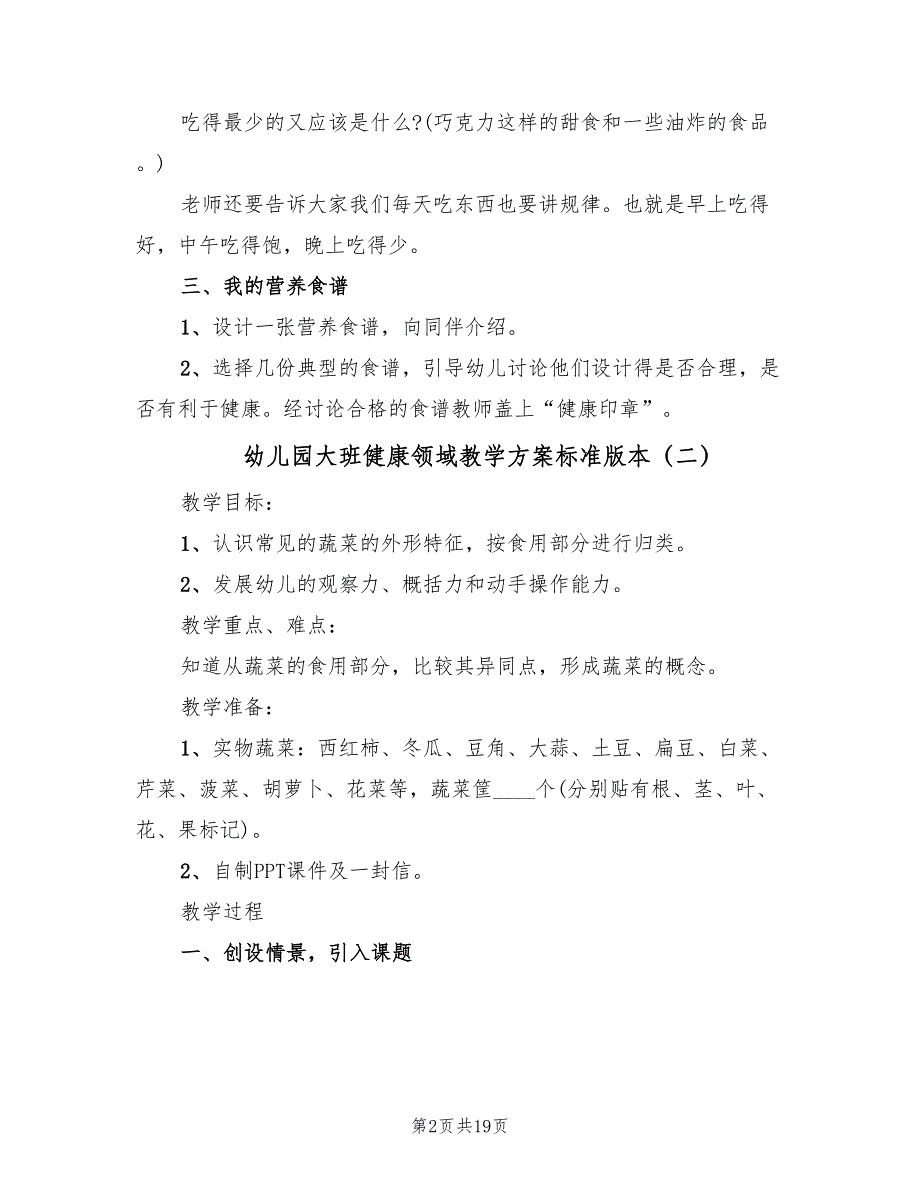 吃得最少的又应该是什么?(巧克力这样的甜食和一些油炸的食品
。)
老师还要告诉大家我们每天吃东西也要讲规律。也就是早上吃得
好，中午吃得饱，晚上吃得少。
三、我的营养食谱
1、设计一张营养食谱，向同伴介绍。
2、选择几份典型的食谱，引导幼儿讨论他们设计得是否合理，是
否有利于健康。经讨论合格的食谱教师盖上“健康印章”。
幼儿园大班健康领域教学方案标准版本（二）
教学目标：
1、认识常见的蔬菜的外形特征，按食用部分进行归类。
2、发展幼儿的观察力、概括力和动手操作能力。
教学重点、难点：
知道从蔬菜的食用部分，比较其异同点，形成蔬菜的概念。
教学准备：
1、实物蔬菜：西红柿、冬瓜、豆角、大蒜、土豆、扁豆、白菜、
芹菜、菠菜、胡萝卜、花菜等，蔬菜筐____个(分别贴有根、茎、叶、
花、果标记)。
2、自制PPT课件及一封信。
教学过程
一、创设情景，引入课题
第2页共19页